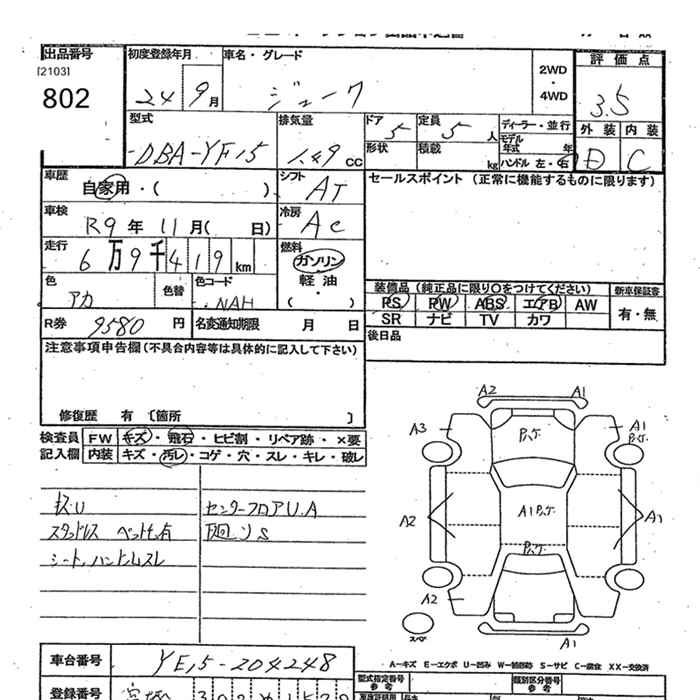 出品番号
[2103]
802
初度登録年月
24 9月
車名・グレード
ジューク
2WD
・
4WD
評価点
3.5
外装 内装
D C
型式
DBA-YF15
排気量
1.49 CC
ドア
5
定員
5 人
形状
積載
kg
ディーラー・並行
モデル
年式 年
ハンドル 左・右
車歴
自家用・( )
シフト
AT
セールスポイント (正常に機能するものに限ります)
車検
R9年 11月( 日)
冷房
AC
走行
6万9千419km
燃料
ガソリン
軽・油
( )
色
アカ
色替
色コード
NAH
装備品 (純正品に限り○をつけてください)
PS PW ABS エアB AW
SR ナビ TV カワ
新車保証書
有・無
R券
9580 円
名変通知期限 月 日
後日品
注意事項申告欄 (不具合内容等は具体的に記入して下さい)
修復歴 有 [箇所 ]
検査員
記入欄
FW キズ・飛石・ヒビ割・リペア跡・×要
内装 キズ・汚レ・コゲ・穴・スレ・キレ・破レ
センターフロアU.A
スタッドレス
下回りS
A2 A1
A3 A1
A2 A1
A2
A1
スペア
A-キズ E-エクボ U-凹み S-サビ C-腐食 XX-交換済
車台番号
YF15-204248
型式指定番号
参考
類別区分番号
参考
登録番号
宮城